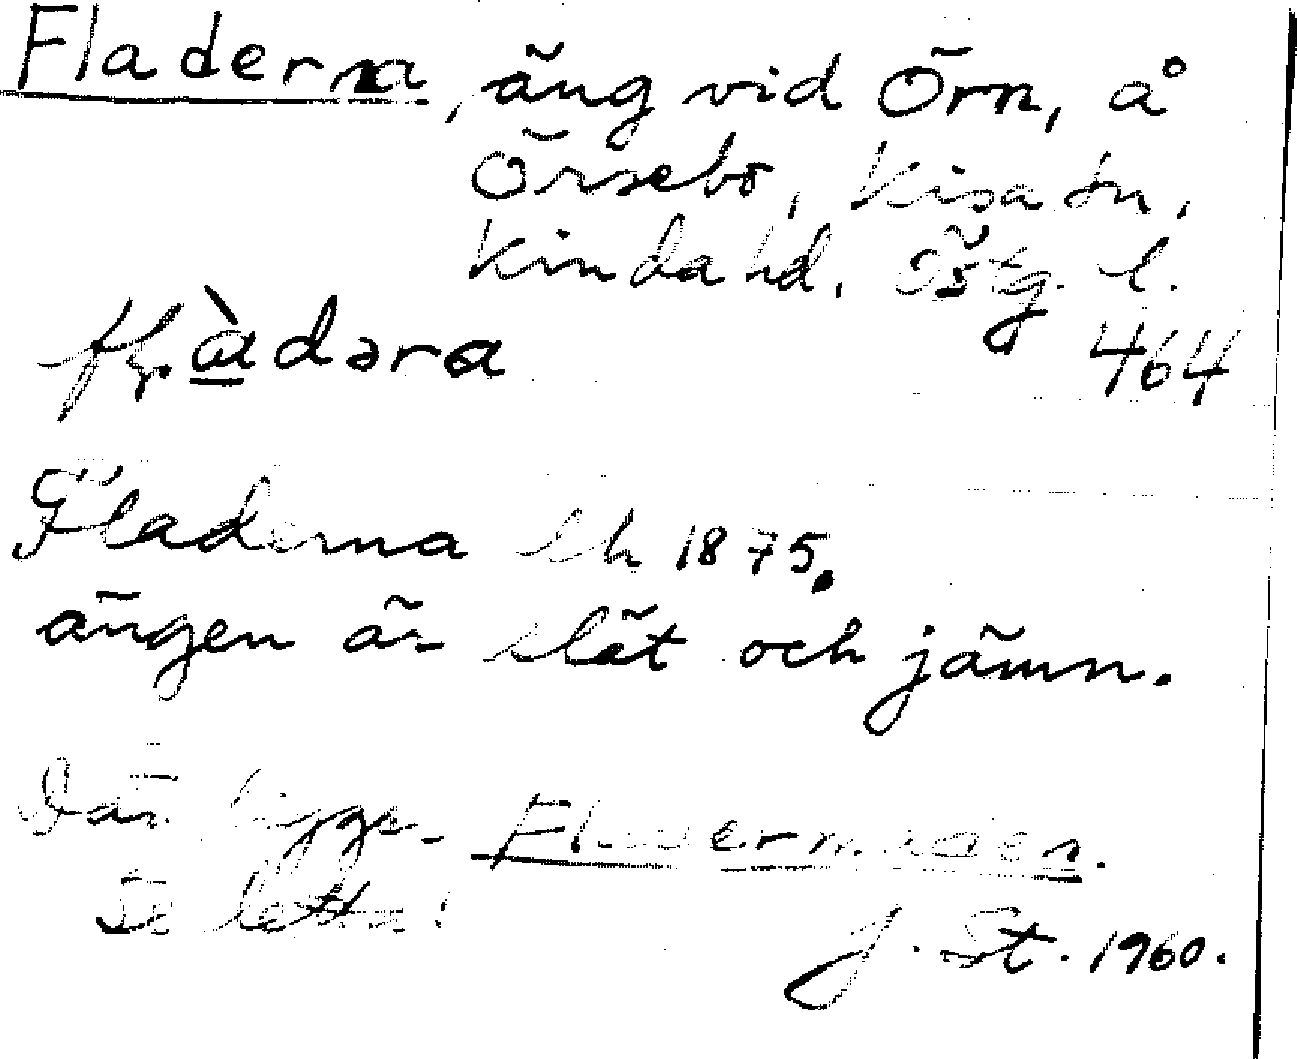 Fladerna, äng vid Örn, å
Örsebo, Kisa sn,
Kinda hd. Östg. l.
464
fḷàdəra
Fladerna lk 1875.
ängen är slät och jämn.
Där ligger
Se detta!
J. St. 1960.